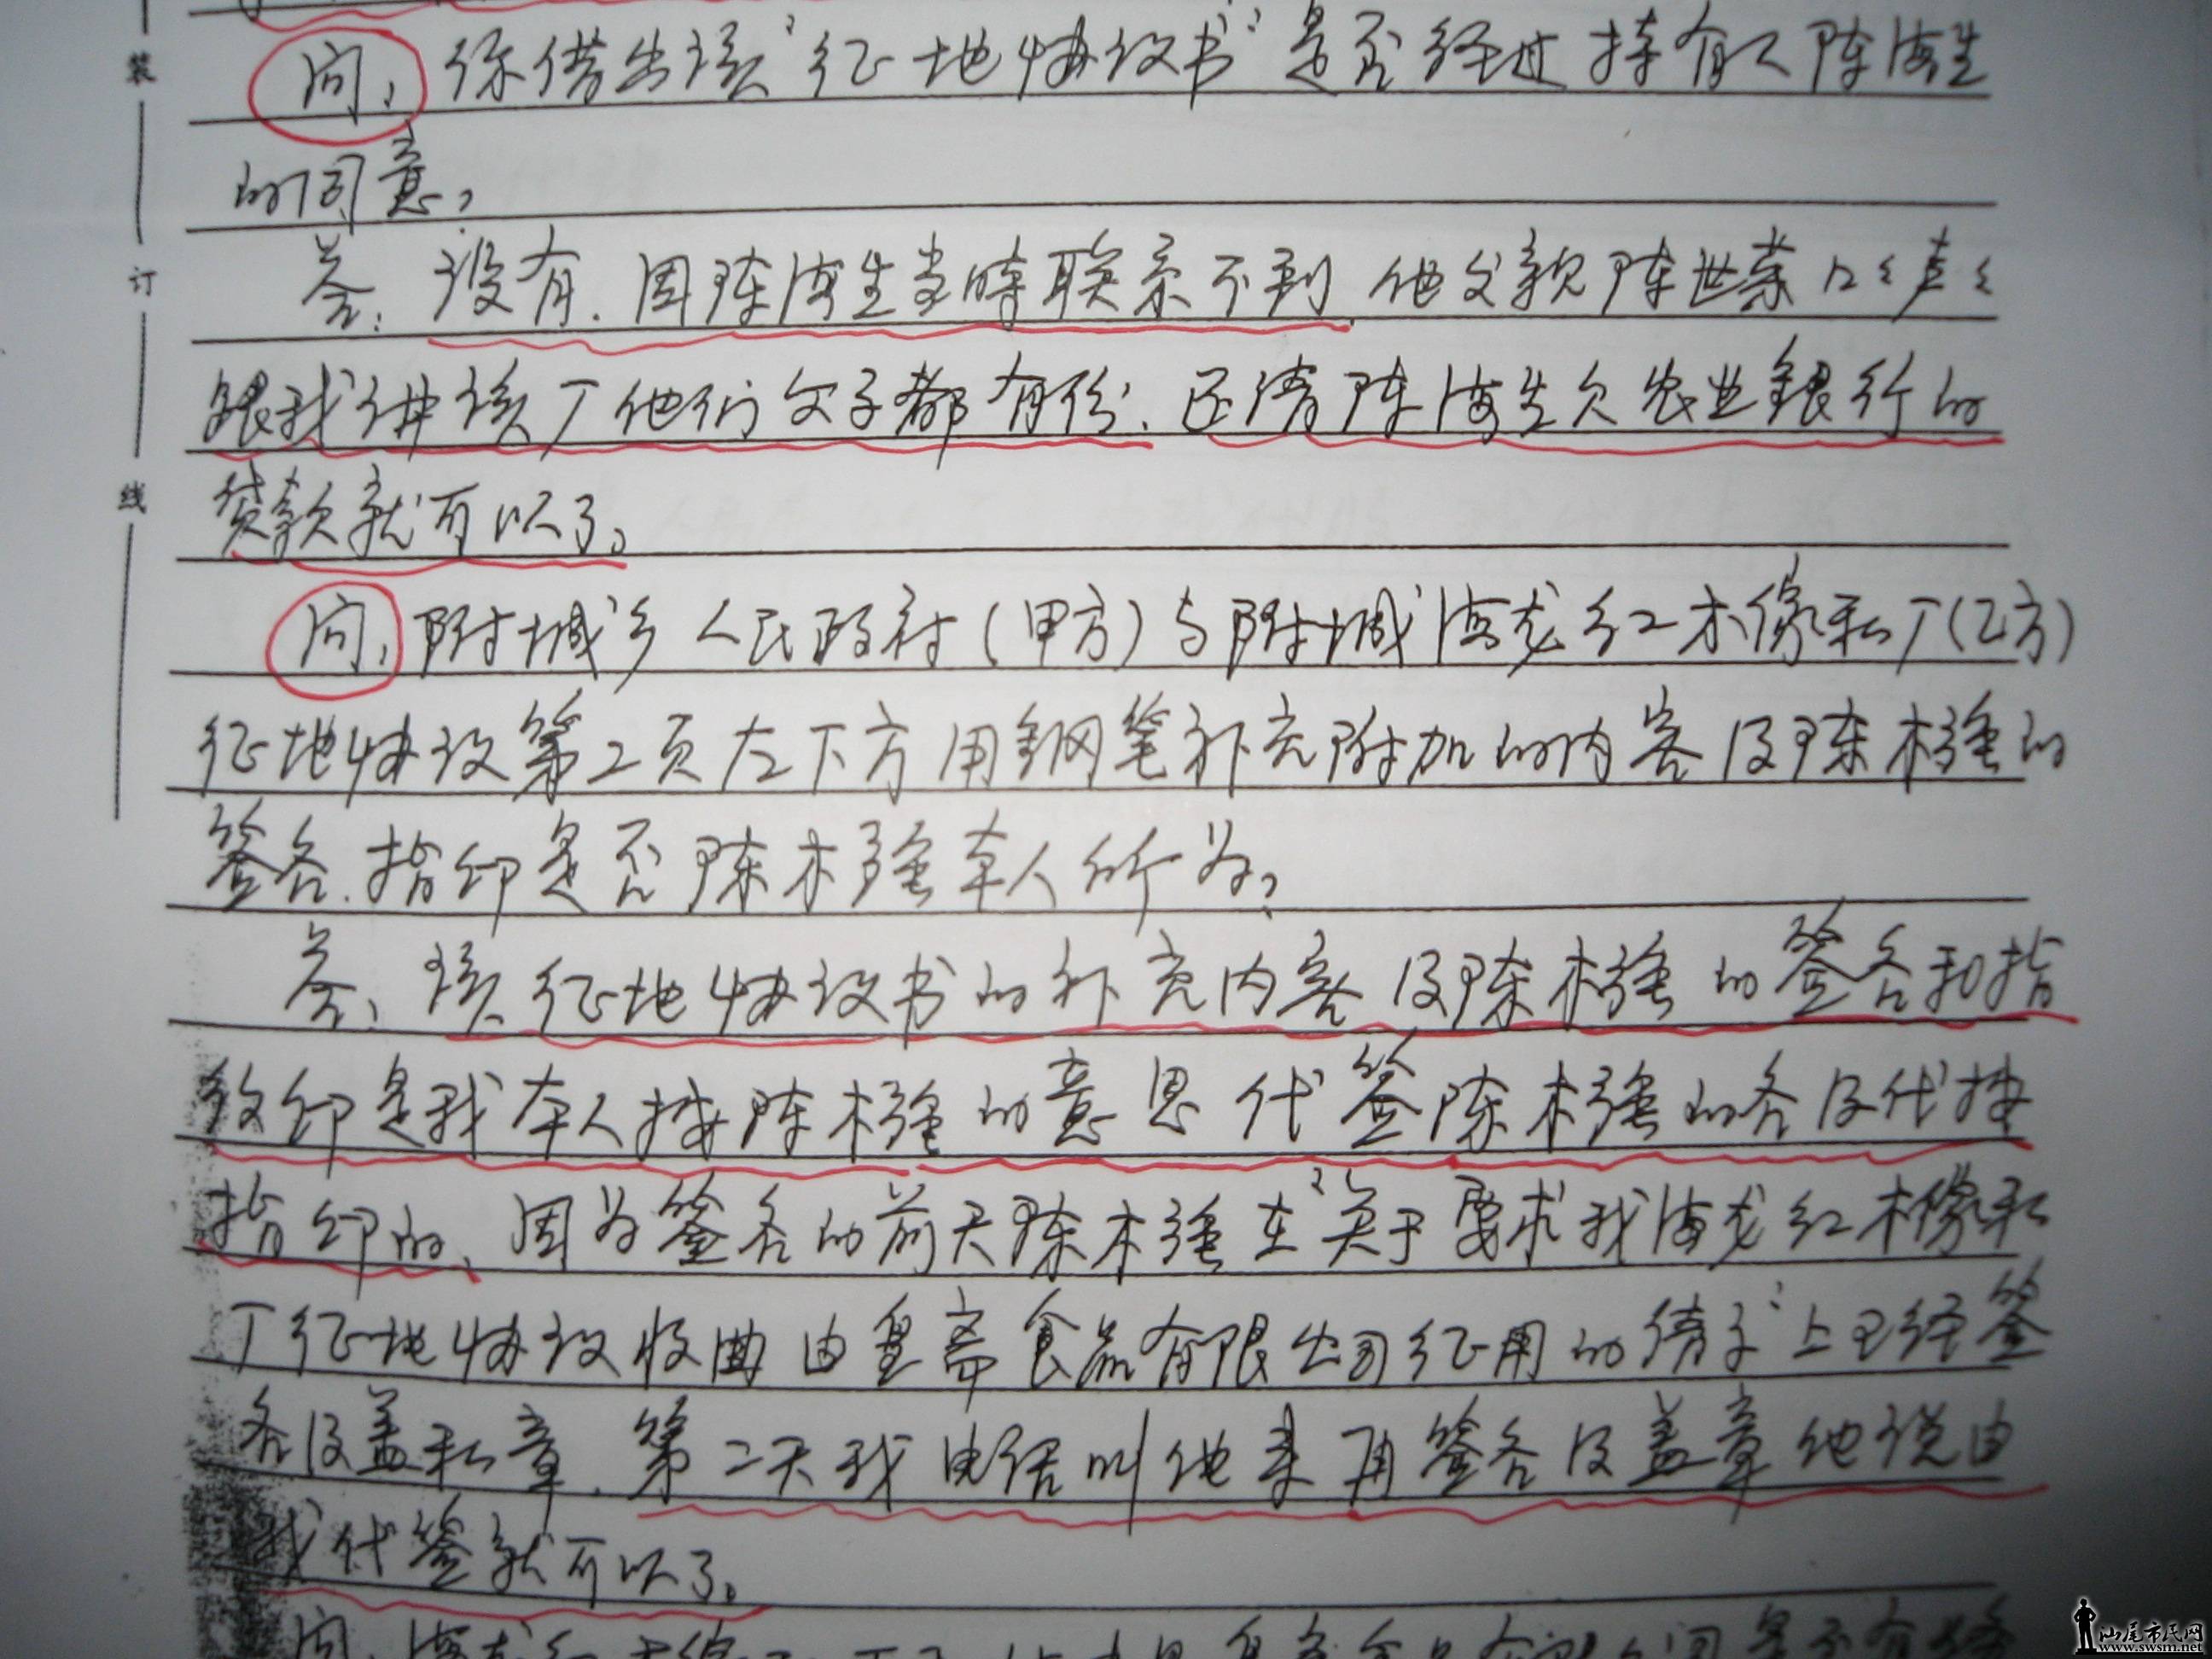 装
订
线
问：你借出该"征地协议书"是否经过持有人陈海生
的同意？
答：没有。因陈海生当时联系不到，他父亲陈世荣口口声声
跟我讲该厂他们父子都有份，还清陈海生欠农业銀行的
贷款就可以了。
问：附城乡人民政府（甲方）与附城海龙红木傢私厂（乙方）
征地协议第二页左下方用鋼笔补充附加的内容及陈木强的
签名、指印是否陈木强本人所为？
答：该征地协议书的补充内容及陈木强的签名和指
纹印是我本人按陈木强的意思代签陈木强的名及代按
指印的，因为签名的前天陈木强在"关于要求我海龙红木傢私
厂征地协议收 由皇斋食品有限公司征用的请示"上已经签
名及盖私章，第二天我电话叫他来再签名及盖章他说由
我代签就可以了。
问：海龙红木傢
汕尾市民网
www.swsm.net